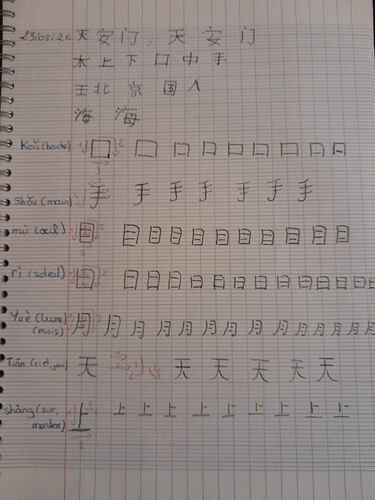 天安门, 天安门
木上下口中手
王北京国人
海海
Kǒu (bouche) 口口口口口口口口口口
Shǒu (main) 手手手手手手手手
mù (œil) 目目目目目目目目目目
rì (soleil) 日日日日日日日日日日日日日
Yuè (lune) 月月月月月月月月月月月月月月
(mois)
Tiān (ciel, 天天天天天天
Shàng (sur, 上上上上上上上上上上
monter)